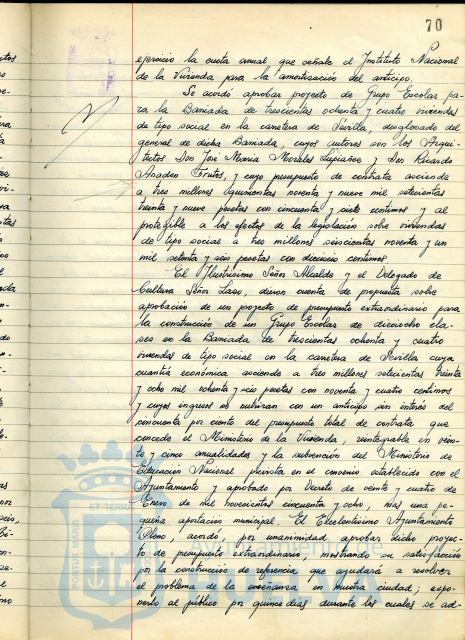 70
ejercicio la cuota anual que señale el Instituto Nacional
de la Vivienda para la amortización del anticipo.
Se acordó aprobar proyecto de Grupo Escolar pa-
ra la Barriada de trescientas ochenta y cuatro viviendas
de tipo social en la carretera de Sevilla, desglosado del
general de dicha Barriada, cuyos autores son los Arqui-
tectos Don José María Morales Lupiañez y Don Ricardo
Anadon Frutos, y cuyo presupuesto de contrata asciende
a tres millones quinientas noventa y nueve mil setecientas
treinta y nueve pesetas con cincuenta y siete centimos y al
protegible a los efectos de la legislación sobre viviendas
de tipo social a tres millones seiscientas noventa y un
mil setenta y seis pesetas con dieciseis centimos.
El Ilustrisimo Señor Alcalde y el Delegado de
Cultura Señor Laso, dieron cuenta de propuesta sobre
aprobación de un proyecto de presupuesto extraordinario para
la construcción de un Grupo Escolar de dieciocho cla-
ses en la Barriada de trescientas ochenta y cuatro
viviendas de tipo social en la carretera de Sevilla cuya
cuantía económica asciende a tres millones setecientas treinta
y ocho mil ochenta y seis pesetas con noventa y cuatro centimos
y cuyos ingresos se nutrirán con un anticipo sin interés del
cincuenta por ciento del presupuesto total de contrata que
concede el Ministerio de la Vivienda, reintegrable en vein-
te y cinco anualidades y la subvención del Ministerio de
Educación Nacional prevista en el convenio establecido con el
Ayuntamiento y aprobado por Decreto de veinte y cuatro de
Enero de mil novecientos cincuenta y ocho, mas una pe-
queña aportación municipal. El Excelentisimo Ayuntamiento
Pleno, acordó, por unanimidad, aprobar dicho proyec-
to de presupuesto extraordinario, mostrando su satisfacción
por la construcción de referencia que ayudará a resolver
el problema de la enseñanza en nuestra ciudad; expo-
nerlo al público por quince dias durante los cuales se ad-